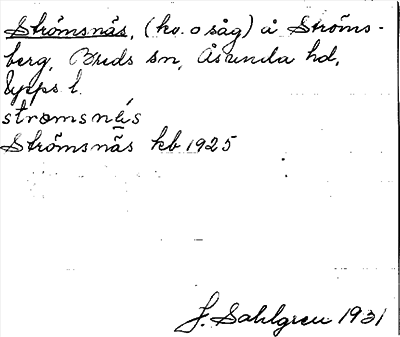 Strömsnäs, (kv. o såg) å Ströms-
berg, Breds sn, Åsunda hd,
Upps l.
strömsnä̀s
Strömsnäs kb 1925
J. Sahlgren 1931